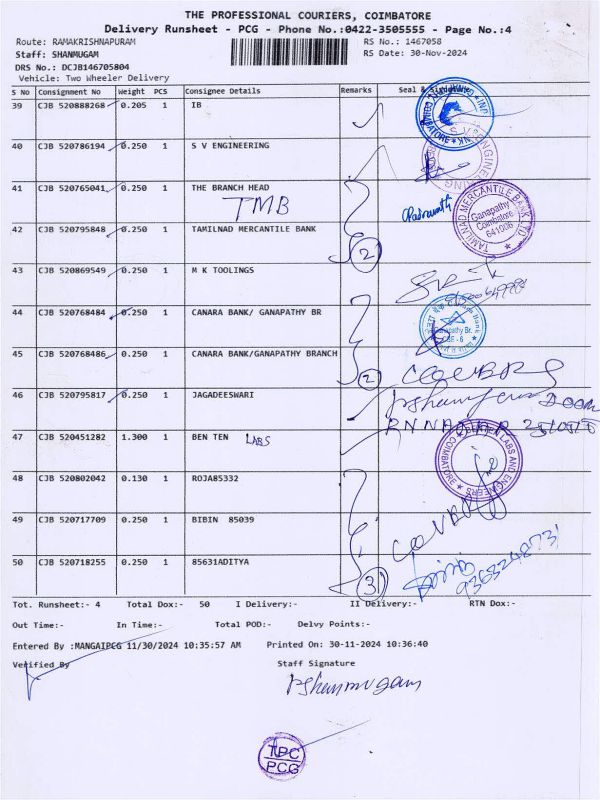 THE PROFESSIONAL COURIERS, COIMBATORE
Delivery Runsheet - PCG - Phone No.:0422-3505555 - Page No.:4
Route: RAMAKRISHNAPURAM RS No.: 1467058
Staff: SHANMUGAM RS Date: 30-Nov-2024
DRS No.: DCJB146705804
Vehicle: Two Wheeler Delivery
S No Consignment No Weight PCS Consignee Details Remarks Seal & Signature
39 CJB 520888268 0.205 1 IB
40 CJB 520786194 0.250 1 S V ENGINEERING
41 CJB 520765041 0.250 1 THE BRANCH HEAD
TMB
TAMILNAD MERCANTILE BANK LTD
Ganapathy
Coimbatore
641006
42 CJB 520795848 0.250 1 TAMILNAD MERCANTILE BANK
2
43 CJB 520869549 0.250 1 M K TOOLINGS
44 CJB 520768484 0.250 1 CANARA BANK/ GANAPATHY BR
Ganapathy Br.
CBE - 6
45 CJB 520768486 0.250 1 CANARA BANK/GANAPATHY BRANCH
2
46 CJB 520795817 0.250 1 JAGADEESWARI
47 CJB 520451282 1.300 1 BEN TEN LABS
48 CJB 520802042 0.130 1 ROJA85332
49 CJB 520717709 0.250 1 BIBIN 85039
50 CJB 520718255 0.250 1 85631ADITYA
3
Tot. Runsheet:- 4 Total Dox:- 50 I Delivery:- II Delivery:- RTN Dox:-
Out Time:- In Time:- Total POD:- Delvy Points:-
Entered By :MANGAIPCG 11/30/2024 10:35:57 AM Printed On: 30-11-2024 10:36:40
Verified By Staff Signature
P Shanmugam
TPC
PCG